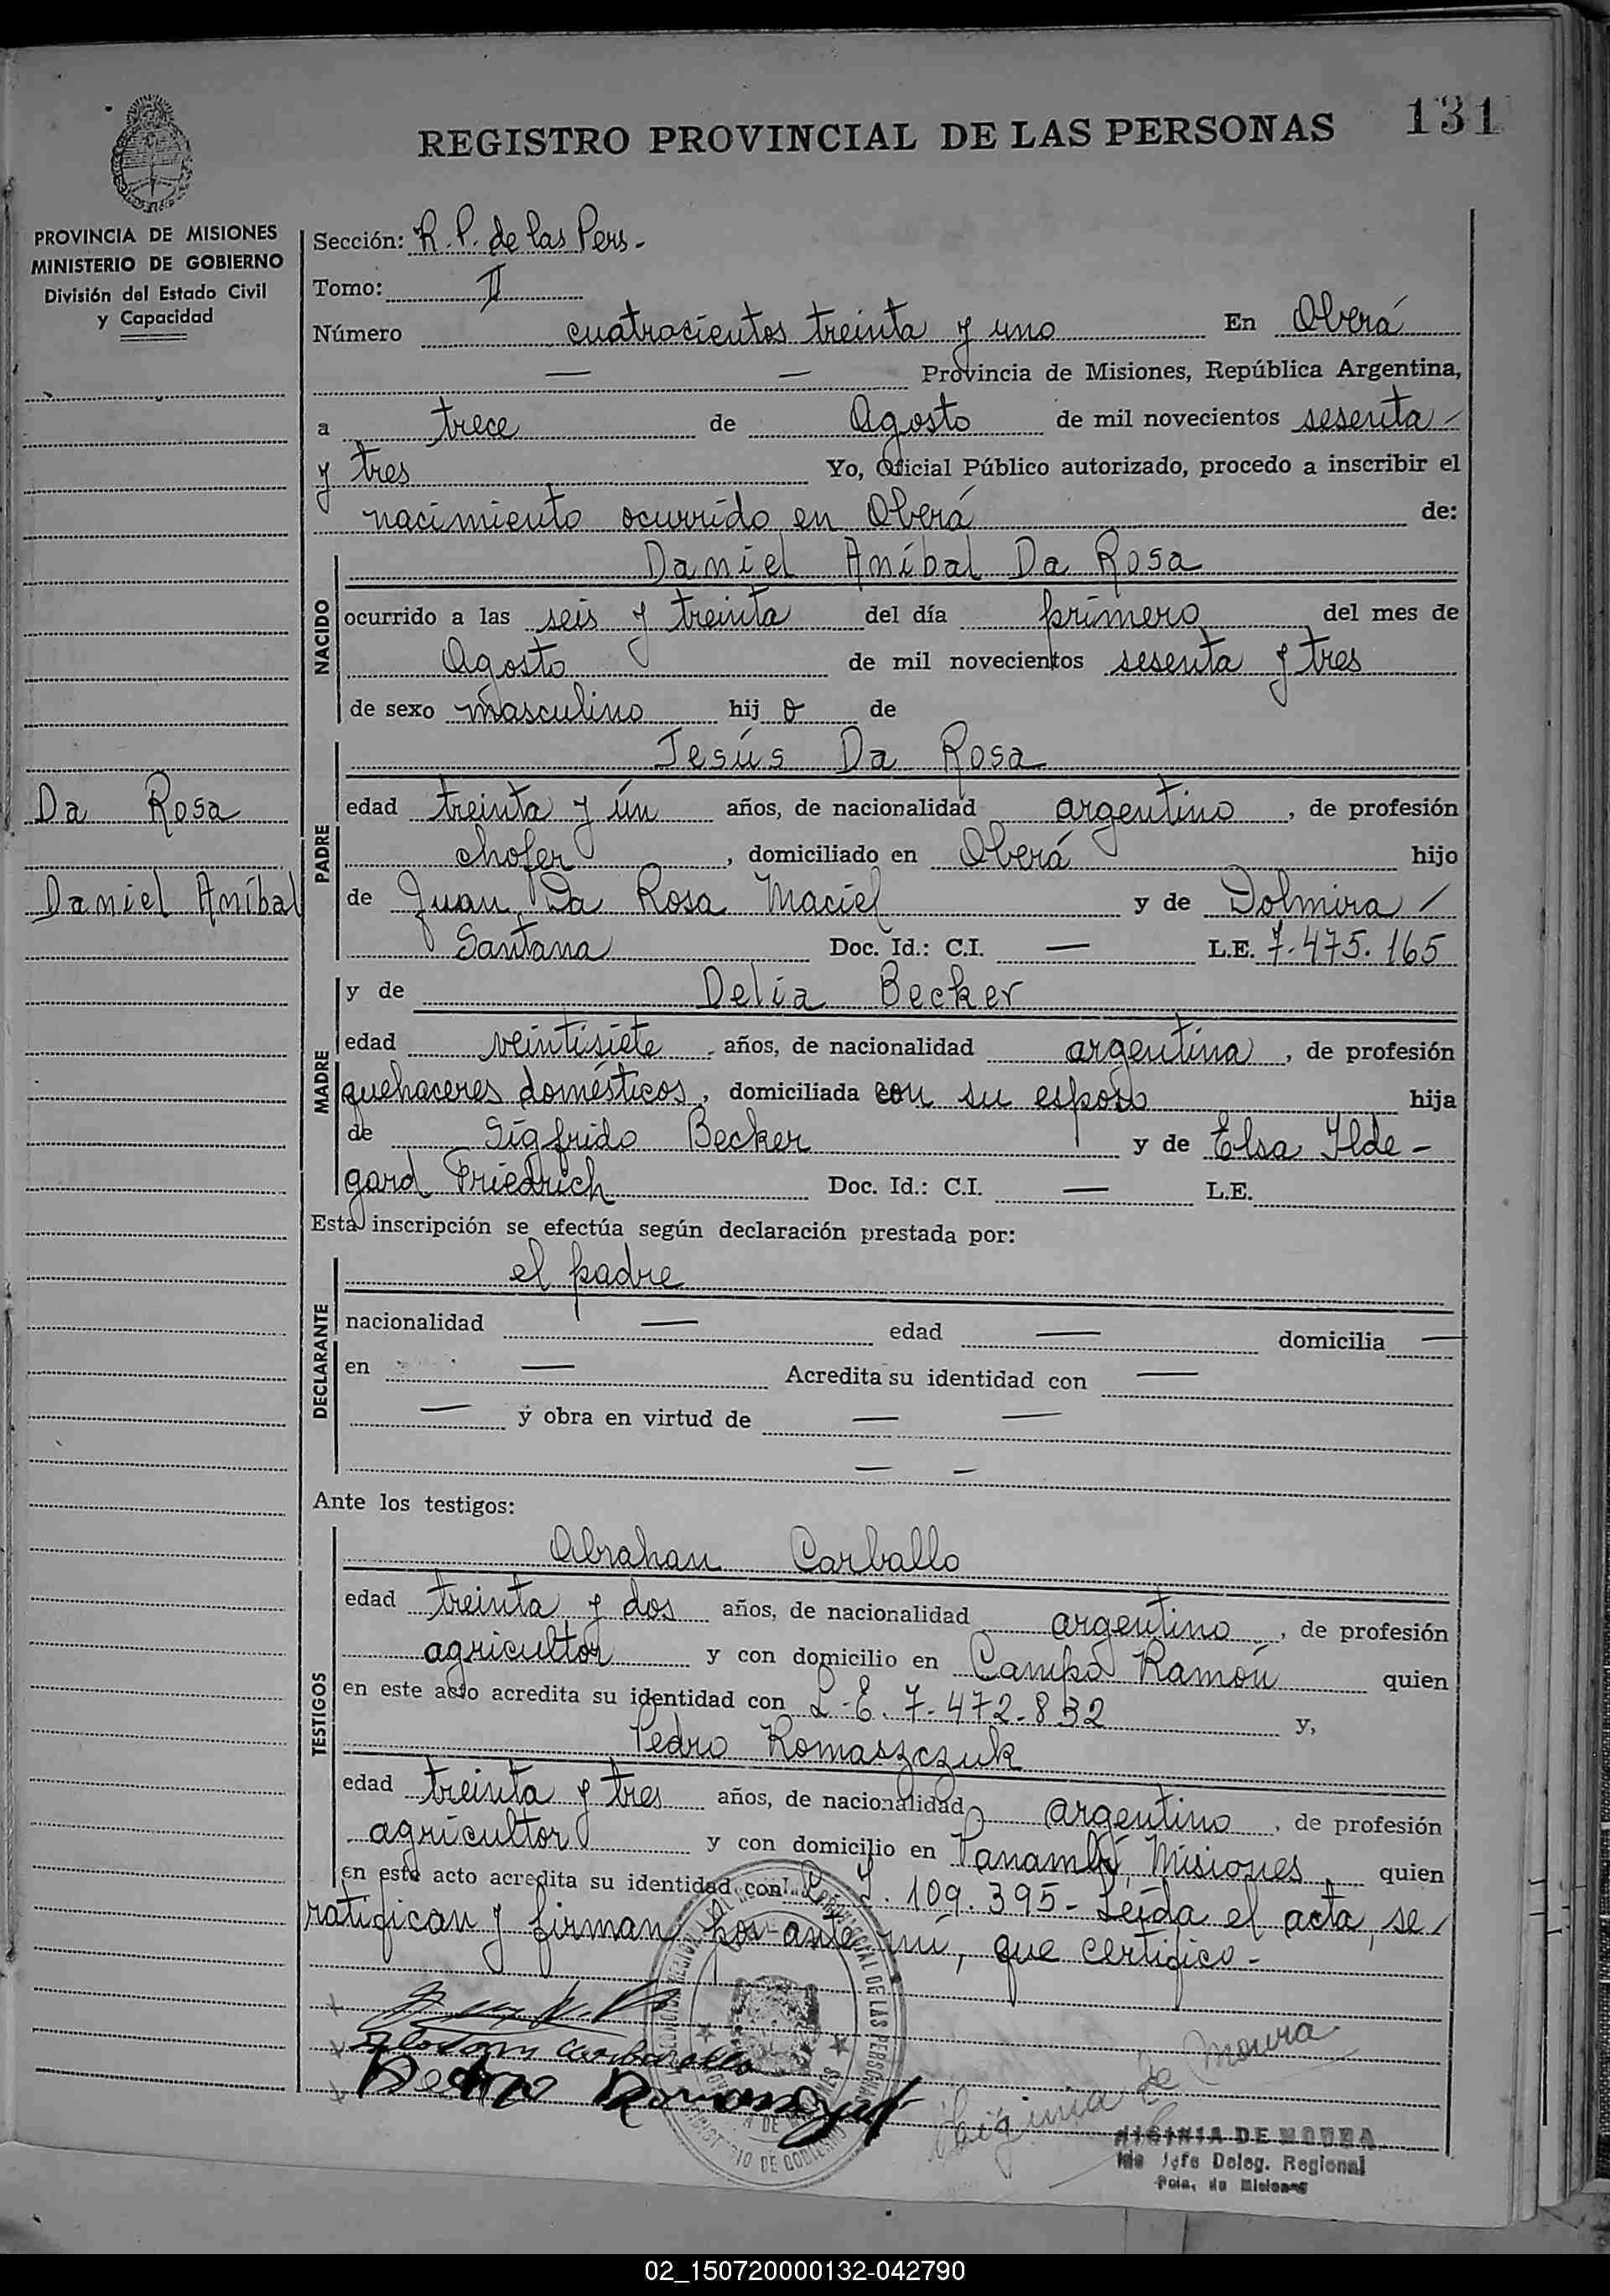 131
REGISTRO PROVINCIAL DE LAS PERSONAS
PROVINCIA DE MISIONES
MINISTERIO DE GOBIERNO
División del Estado Civil
y Capacidad
Sección: R. P. de las Pers.-
Tomo: II
Número cuatrocientos treinta y uno En Oberá
— — Provincia de Misiones, República Argentina,
a trece de Agosto de mil novecientos sesenta
y tres Yo, Oficial Público autorizado, procedo a inscribir el
nacimiento ocurrido en Oberá de:
NACIDO
Daniel Aníbal Da Rosa
ocurrido a las seis y treinta del día primero del mes de
Agosto de mil novecientos sesenta y tres
de sexo masculino hij o de
PADRE
Jesús Da Rosa
Da Rosa
Daniel Aníbal
edad treinta y ún años, de nacionalidad argentino, de profesión
chofer, domiciliado en Oberá hijo
de Juan Da Rosa Maciel y de Dolmira /
Santana Doc. Id.: C.I. — L.E. 7.475.165
MADRE
y de Delia Becker
edad veintisiete años, de nacionalidad argentina, de profesión
quehaceres domésticos, domiciliada con su esposo hija
de Sigfrido Becker y de Elsa Ilde-
gard Friedrich Doc. Id.: C.I. — L.E.
Esta inscripción se efectúa según declaración prestada por:
DECLARANTE
el padre
nacionalidad — edad — domicilia —
en — Acredita su identidad con —
— y obra en virtud de — —
— —
Ante los testigos:
TESTIGOS
Abrahan Carballo
edad treinta y dos años, de nacionalidad argentino, de profesión
agricultor y con domicilio en Campo Ramón quien
en este acto acredita su identidad con L.E. 7.472.832 y,
Pedro Romaszczuk
edad treinta y tres años, de nacionalidad argentino, de profesión
agricultor y con domicilio en Panambí, Misiones quien
en este acto acredita su identidad con L. 7.109.395- Leída el acta, se /
ratifican y firman por ante mí, que certifico.-
Carballo
Pedro
Higinia de Moura
HIGINIA DE MOURA
Jefe Deleg. Regional
Pcia. de Misiones
02_150720000132-042790